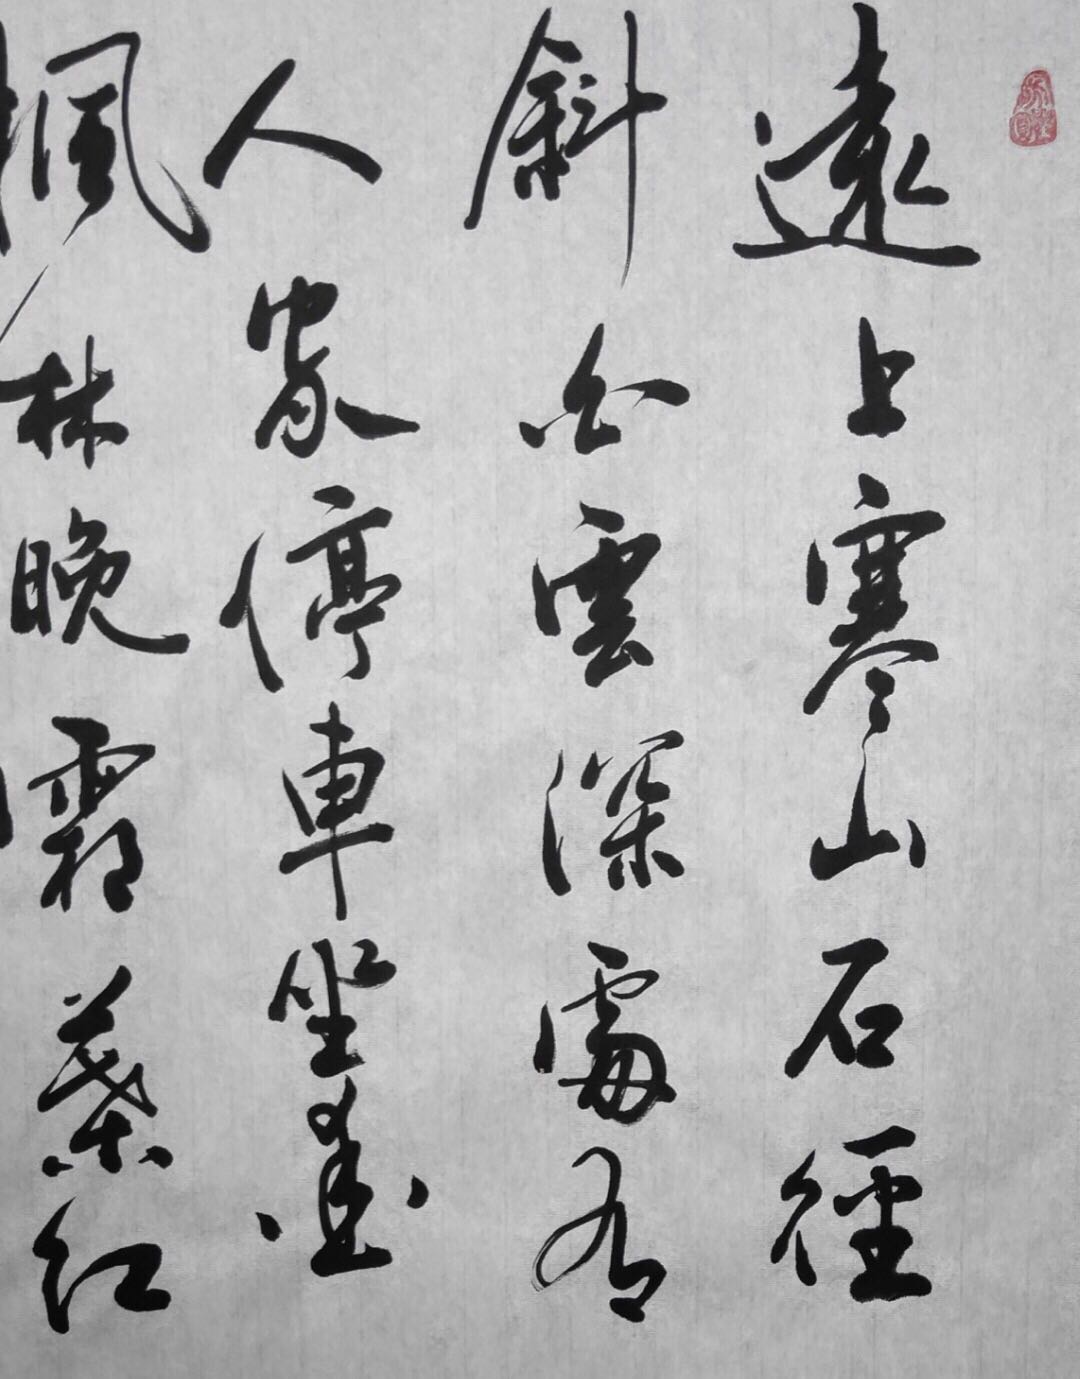 遠上寒山石徑
斜白雲深處有
人家停車坐愛
楓林晚霜葉紅